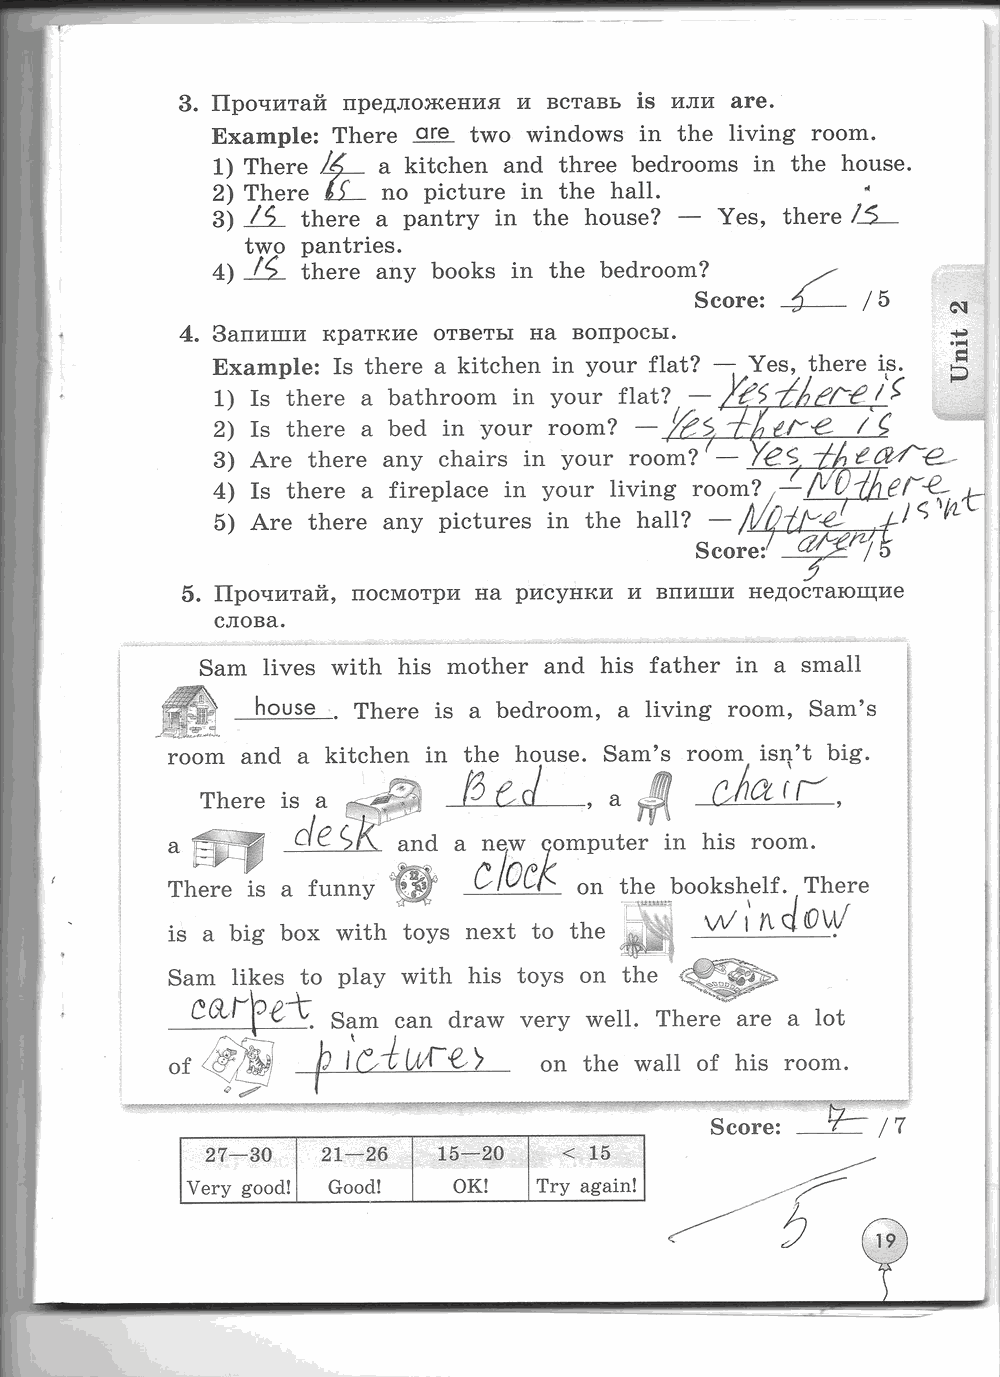 3. Прочитай предложения и вставь is или are.
Example: There are two windows in the living room.
1) There is a kitchen and three bedrooms in the house.
2) There is no picture in the hall.
3) is there a pantry in the house? — Yes, there is
two pantries.
4) is there any books in the bedroom?
Score: 5 / 5
Unit 2
4. Запиши краткие ответы на вопросы.
Example: Is there a kitchen in your flat? — Yes, there is.
1) Is there a bathroom in your flat? — Yes there is
2) Is there a bed in your room? — Yes, there is
3) Are there any chairs in your room? — Yes, the are
4) Is there a fireplace in your living room? — No there
isn't
5) Are there any pictures in the hall? — No, tre
aren't
Score: 5 / 5
5. Прочитай, посмотри на рисунки и впиши недостающие
слова.
Sam lives with his mother and his father in a small
house. There is a bedroom, a living room, Sam's
room and a kitchen in the house. Sam's room isn't big.
There is a Bed, a chair,
a desk and a new computer in his room.
There is a funny clock on the bookshelf. There
is a big box with toys next to the window.
Sam likes to play with his toys on the
carpet. Sam can draw very well. There are a lot
of pictures on the wall of his room.
Score: 7 / 7
27—30 21—26 15—20 < 15
Very good! Good! OK! Try again!
5
19